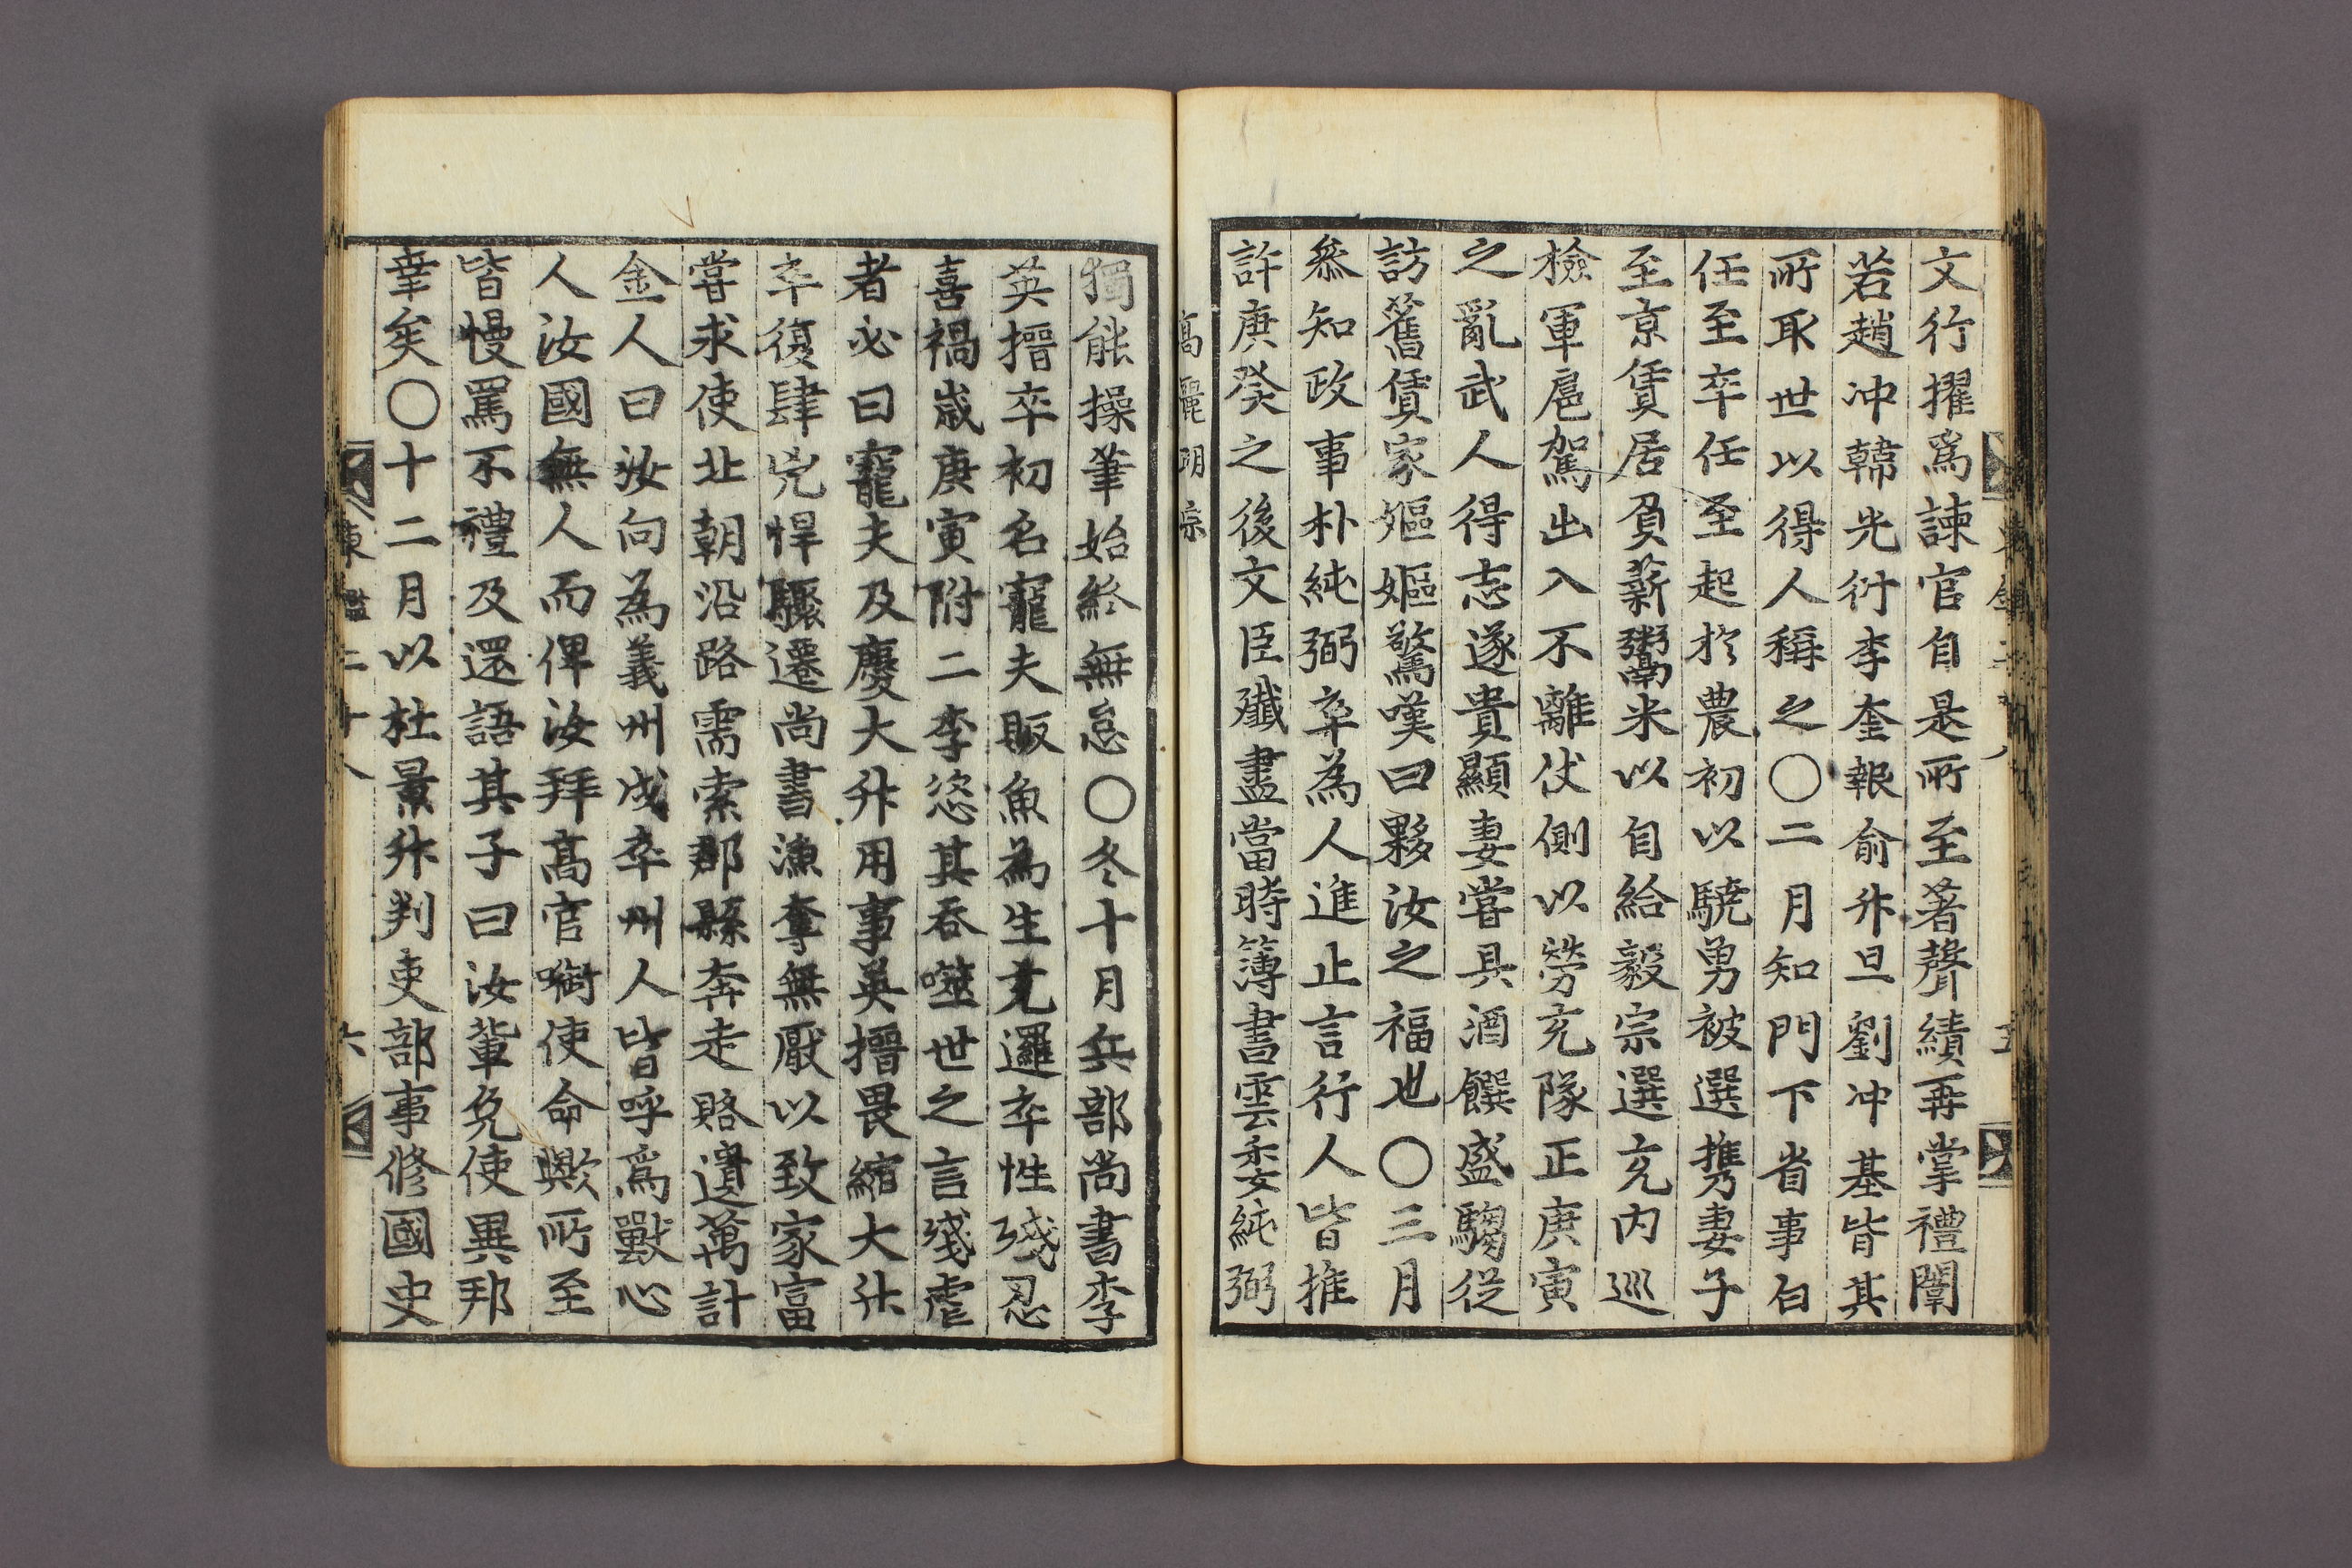 文行擢爲諫官自是所至著聲績再掌禮闈
若趙冲韓光衍李奎報俞升旦劉冲基皆其
所取世以得人稱之〇二月知門下省事白
任至卒任至起於農初以驍勇被選携妻子
至京賃居負薪粥米以自給毅宗選充内巡
檢軍扈駕出入不離仗側以勞充隊正庚寅
之亂武人得志遂貴顯妻嘗具酒饌盛騶從
訪舊賃家嫗嫗驚嘆曰夥汝之福也〇三月
叅知政事朴純弼卒為人進止言行人皆推
許庚癸之後文臣殲盡當時簿書雲委純弼
高麗明宗
獨能操筆始終無怠〇冬十月兵部尚書李
英搢卒初名寵夫販魚為生充邏卒性殘忍
喜禍歲庚寅附二李恣其吞噬世之言殘虐
者必曰寵夫及慶大升用事英搢畏縮大升
卒復肆兇悍驟遷尚書漁奪無厭以致家富
嘗求使北朝沿路需索郡縣奔走賂遺萬計
金人曰汝向為義州戍卒州人皆呼爲獸心
人汝國無人而俾汝拜高官啣使命歟所至
皆慢罵不禮及還語其子曰汝輩免使異邦
幸矣〇十二月以杜景升判吏部事修國史
東鑑二十八
六